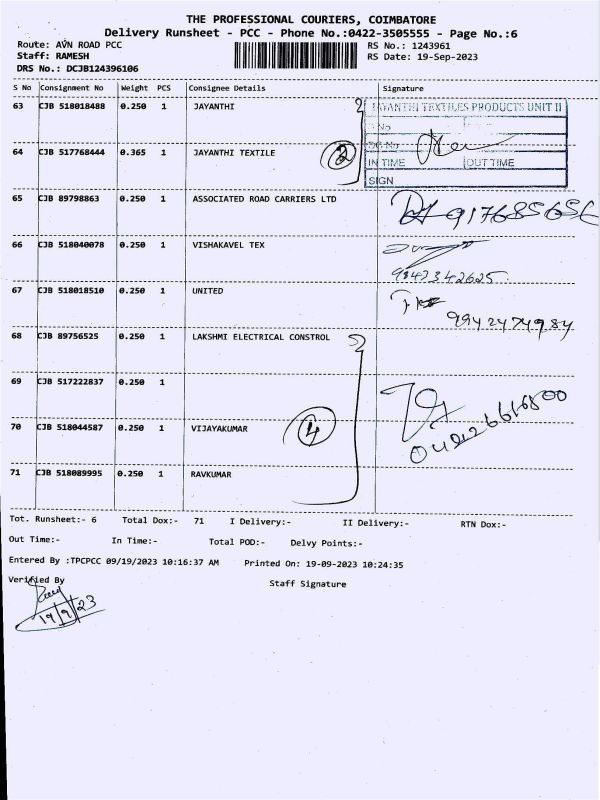 THE PROFESSIONAL COURIERS, COIMBATORE
Delivery Runsheet - PCC - Phone No.:0422-3505555 - Page No.:6
Route: AVN ROAD PCC
RS No.: 1243961
Staff: RAMESH
RS Date: 19-Sep-2023
DRS No.: DCJB124396106
S No Consignment No Weight PCS Consignee Details Signature
63 CJB 518018488 0.250 1 JAYANTHI
JAYANTHI TEXTILES PRODUCTS UNIT II
No
64 CJB 517768444 0.365 1 JAYANTHI TEXTILE
2
IN TIME OUT TIME
SIGN
65 CJB 89798863 0.250 1 ASSOCIATED ROAD CARRIERS LTD
66 CJB 518040078 0.250 1 VISHAKAVEL TEX
9843342625
67 CJB 518018510 0.250 1 UNITED
9942474984
68 CJB 89756525 0.250 1 LAKSHMI ELECTRICAL CONSTROL
69 CJB 517222837 0.250 1
70 CJB 518044587 0.250 1 VIJAYAKUMAR
4
71 CJB 518089995 0.250 1 RAVKUMAR
Tot. Runsheet:- 6 Total Dox:- 71 I Delivery:- II Delivery:- RTN Dox:-
Out Time:- In Time:- Total POD:- Delvy Points:-
Entered By :TPCPCC 09/19/2023 10:16:37 AM Printed On: 19-09-2023 10:24:35
Verified By Staff Signature
19/9/23